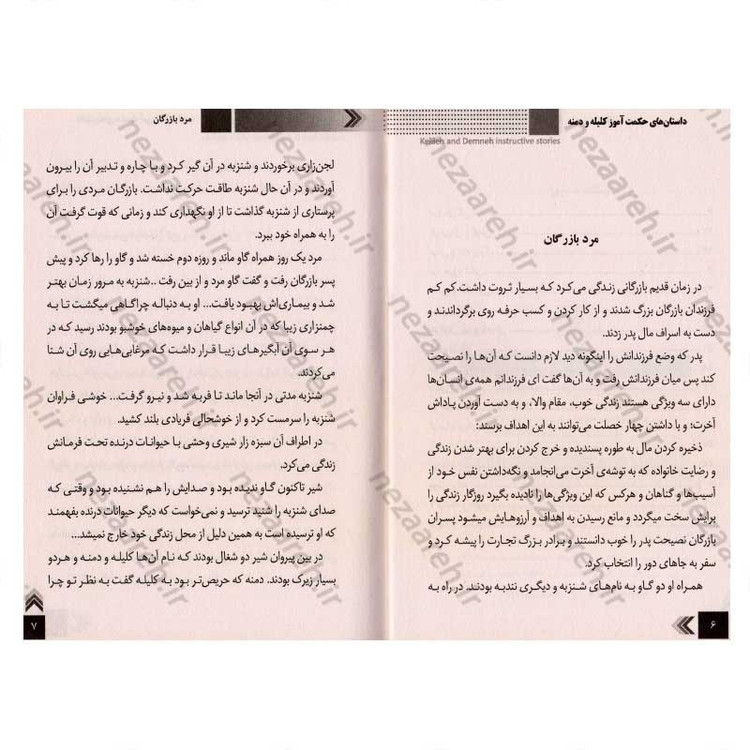 داستان‌های حکمت آموز کلیله و دمنه
Kelileh and Demneh instructive stories
مرد بازرگان
در زمان قدیم بازرگانی زندگی می‌کرد که بسیار ثروت داشت.کم کم
فرزندآن بازرگان بزرگ شدند و از کار کردن و کسب حرفه روی برگرداندند و
دست به اسراف مال پدر زدند.
پدر که وضع فرزندانش را اینگونه دید لازم دانست که آن‌ها را نصیحت
کند پس میان فرزندانش رفت و به آن‌ها گفت ای فرزندانم همه‌ی انسان‌ها
دارای سه ویژگی هستند زندگی خوب، مقام والا، و به دست آوردن پاداش
آخرت؛ و با داشتن چهار خصلت می‌توانند به این اهداف برسند:
ذخیره کردن مال به طوره پسندیده و خرج کردن برای بهتر شدن زندگی
و رضایت خانواده که به توشه‌ی آخرت می‌انجامد و نگه‌داشتن نفس خود از
آسیب‌ها و گناهان و هرکس که این ویژگی‌ها را نادیده بگیرد روزگار زندگی را
برایش سخت میگردد و مانع رسیدن به اهداف و آرزوهایش میشود پسران
بازرگان نصیحت پدر را خوب دانستند و برادر بزرگ تجارت را پیشه کرد و
سفر به جاهای دور را انتخاب کرد.
همراه او دو گاو به نام‌های شنزبه و دیگری نندبه بودند. در راه به
۶
مرد بازرگان
لجن‌زاری برخوردند و شنزبه در آن گیر کرد و با چاره و تدبیر آن را بیرون
آوردند و در آن حال شنزبه طاقت حرکت نداشت. بازرگان مردی را برای
پرستاری از شنزبه گذاشت تا از او نگهداری کند و زمانی که قوت گرفت آن
را به همراه خود ببرد.
مرد یک روز همراه گاو ماند و روزه دوم خسته شد و گاو را رها کرد و پیش
پسر بازرگان رفت و گفت گاو مرد و از بین رفت ..شنزبه به مرور زمان بهتر
شد و بیماری‌اش بهبود یافت... او به دنباله چراگاهی میگشت تا به
چمنزاری زیبا که در آن انواع گیاهان و میوه‌های خوشبو بودند رسید که در
هر سوی آن آبگیرهای زیبا قرار داشت که مرغابی‌هایی روی آن شنا
می‌کردند.
شنزبه مدتی در آنجا ماند تا فربه شد و نیرو گرفت... خوشی فراوان
شنزبه را سرمست کرد و از خوشحالی فریادی بلند کشید.
در اطراف آن سبزه زار شیری وحشی با حیوانات درنده تحت فرمانش
زندگی می‌کرد.
شیر تاکنون گاو ندیده بود و صدایش را هم نشنیده بود و وقتی که
صدای شنزبه را شنید ترسید و نمی‌خواست که دیگر حیوانات درنده بفهمند
که او ترسیده است به همین دلیل از محل زندگی خود خارج نمیشد...
در بین پیروان شیر دو شغال بودند که نام آن‌ها کلیله و دمنه و هردو
بسیار زیرک بودند. دمنه که حریص‌تر بود به کلیله گفت به نظر تو چرا
۷
nezaareh.ir
nezaareh.ir
nezaareh.ir
nezaareh.ir
nezaareh.ir
nezaareh.ir